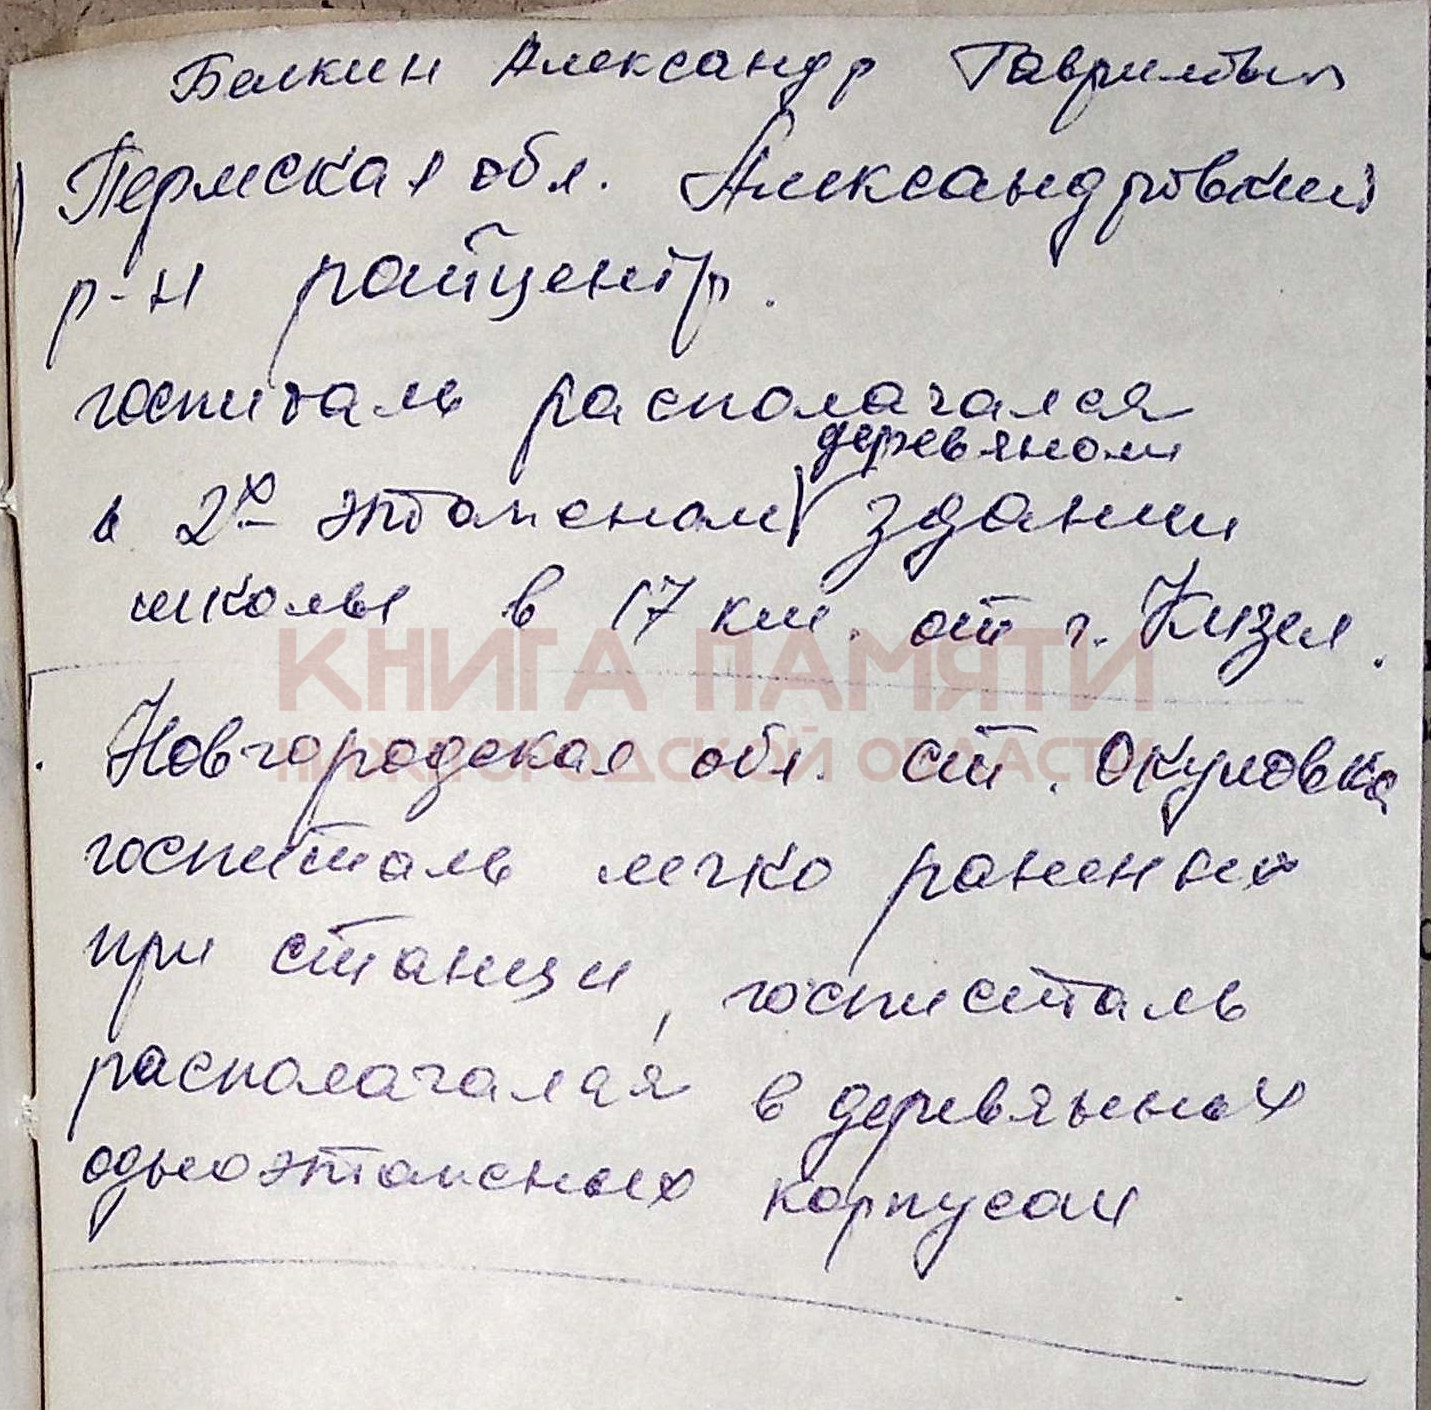 Белкин Александр Гаврилович
Пермская обл. Александровкий
р-н райцентр.
госпиталь располагался
деревяном
в 2х этажном здании
школы в 17 км. от г. Кизел.
КНИГА ПАМЯТИ
Новгородская обл. ст. Окуловка
НИЖЕГОРОДСКОЙ ОБЛАСТИ
госпиталь легко раненных
при станци, госпиталь
располагалая в деревянных
одноэтажных корпусах